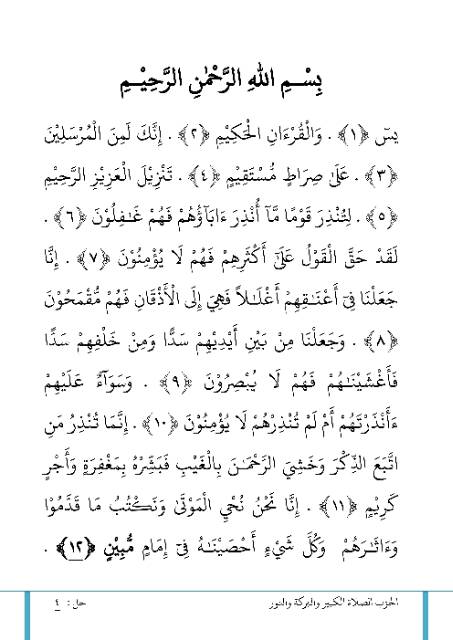 بِسْمِ اللهِ الرَّحْمٰنِ الرَّحِيْمِ
يسٓ ﴿١﴾ . وَالْقُرْءَانِ الْحَكِيْمِ ﴿٢﴾ . إِنَّكَ لَمِنَ الْمُرْسَلِيْنَ
﴿٣﴾ . عَلَىٰ صِرَاطٍ مُّسْتَقِيْمٍ ﴿٤﴾ . تَنْزِيْلَ الْعَزِيْزِ الرَّحِيْمِ
﴿٥﴾ . لِتُنْذِرَ قَوْمًا مَّآ أُنْذِرَ ءَابَآؤُهُمْ فَهُمْ غَـٰفِلُوْنَ ﴿٦﴾ .
لَقَدْ حَقَّ الْقَوْلُ عَلَىٰٓ أَكْثَرِهِمْ فَهُمْ لَا يُؤْمِنُوْنَ ﴿٧﴾ . إِنَّا
جَعَلْنَا فِىٓ أَعْنَـٰقِهِمْ أَغْلَـٰلًا فَهِيَ إِلَى الْأَذْقَانِ فَهُمْ مُّقْمَحُوْنَ
﴿٨﴾ . وَجَعَلْنَا مِنْ بَيْنِ أَيْدِيْهِمْ سَدًّا وَمِنْ خَلْفِهِمْ سَدًّا
فَأَغْشَيْنَـٰهُمْ فَهُمْ لَا يُبْصِرُوْنَ ﴿٩﴾ . وَسَوَآءٌ عَلَيْهِمْ
ءَأَنْذَرْتَهُمْ أَمْ لَمْ تُنْذِرْهُمْ لَا يُؤْمِنُوْنَ ﴿١٠﴾ . إِنَّمَا تُنْذِرُ مَنِ
اتَّبَعَ الذِّكْرَ وَخَشِيَ الرَّحْمَـٰنَ بِالْغَيْبِ فَبَشِّرْهُ بِمَغْفِرَةٍ وَأَجْرٍ
كَرِيْمٍ ﴿١١﴾ . إِنَّا نَحْنُ نُحْيِ الْمَوْتَىٰ وَنَكْتُبُ مَا قَدَّمُوْا
وَءَاثَـٰرَهُمْ وَكُلَّ شَيْءٍ أَحْصَيْنَـٰهُ فِىٓ إِمَامٍ مُّبِيْنٍ ﴿١٢﴾ .
الحزب الصلاة الكبير والبركة والنور
حل : ٤